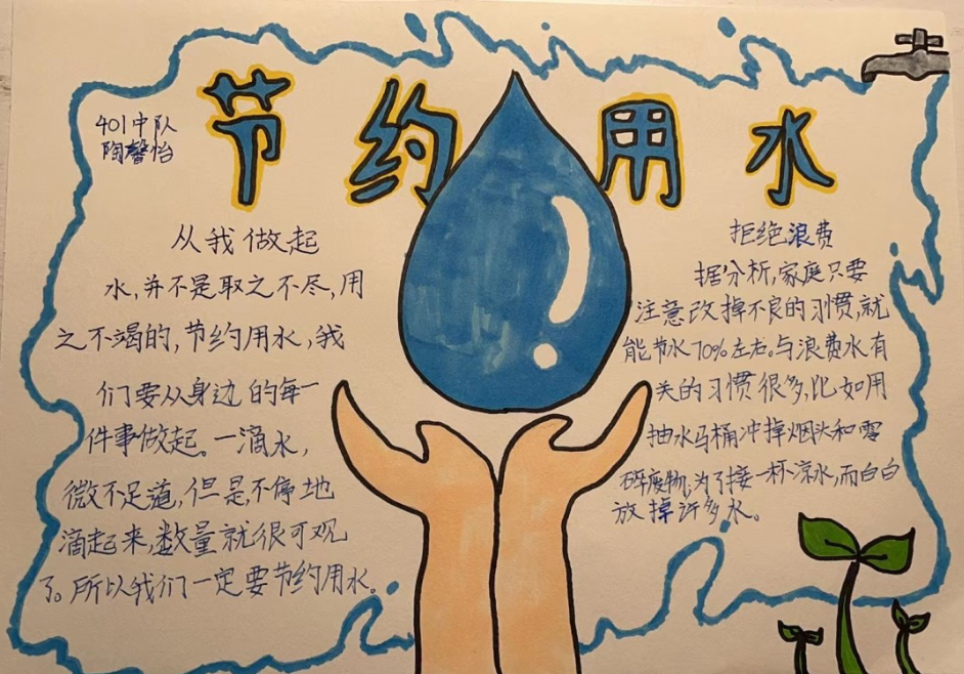 节约用水
401中队
陶馨怡
从我做起
水,并不是取之不尽,用
之不竭的,节约用水,我
们要从身边的每一
件事做起。一滴水,
微不足道,但是,不停地
滴起来,数量就很可观
了。所以我们一定要节约用水。
拒绝浪费
据分析,家庭只要
注意改掉不良的习惯,就
能节水70%左右。与浪费水有
关的习惯很多,比如用
抽水马桶冲掉烟头和零
碎废物;为了接一杯凉水,而白白
放掉许多水。